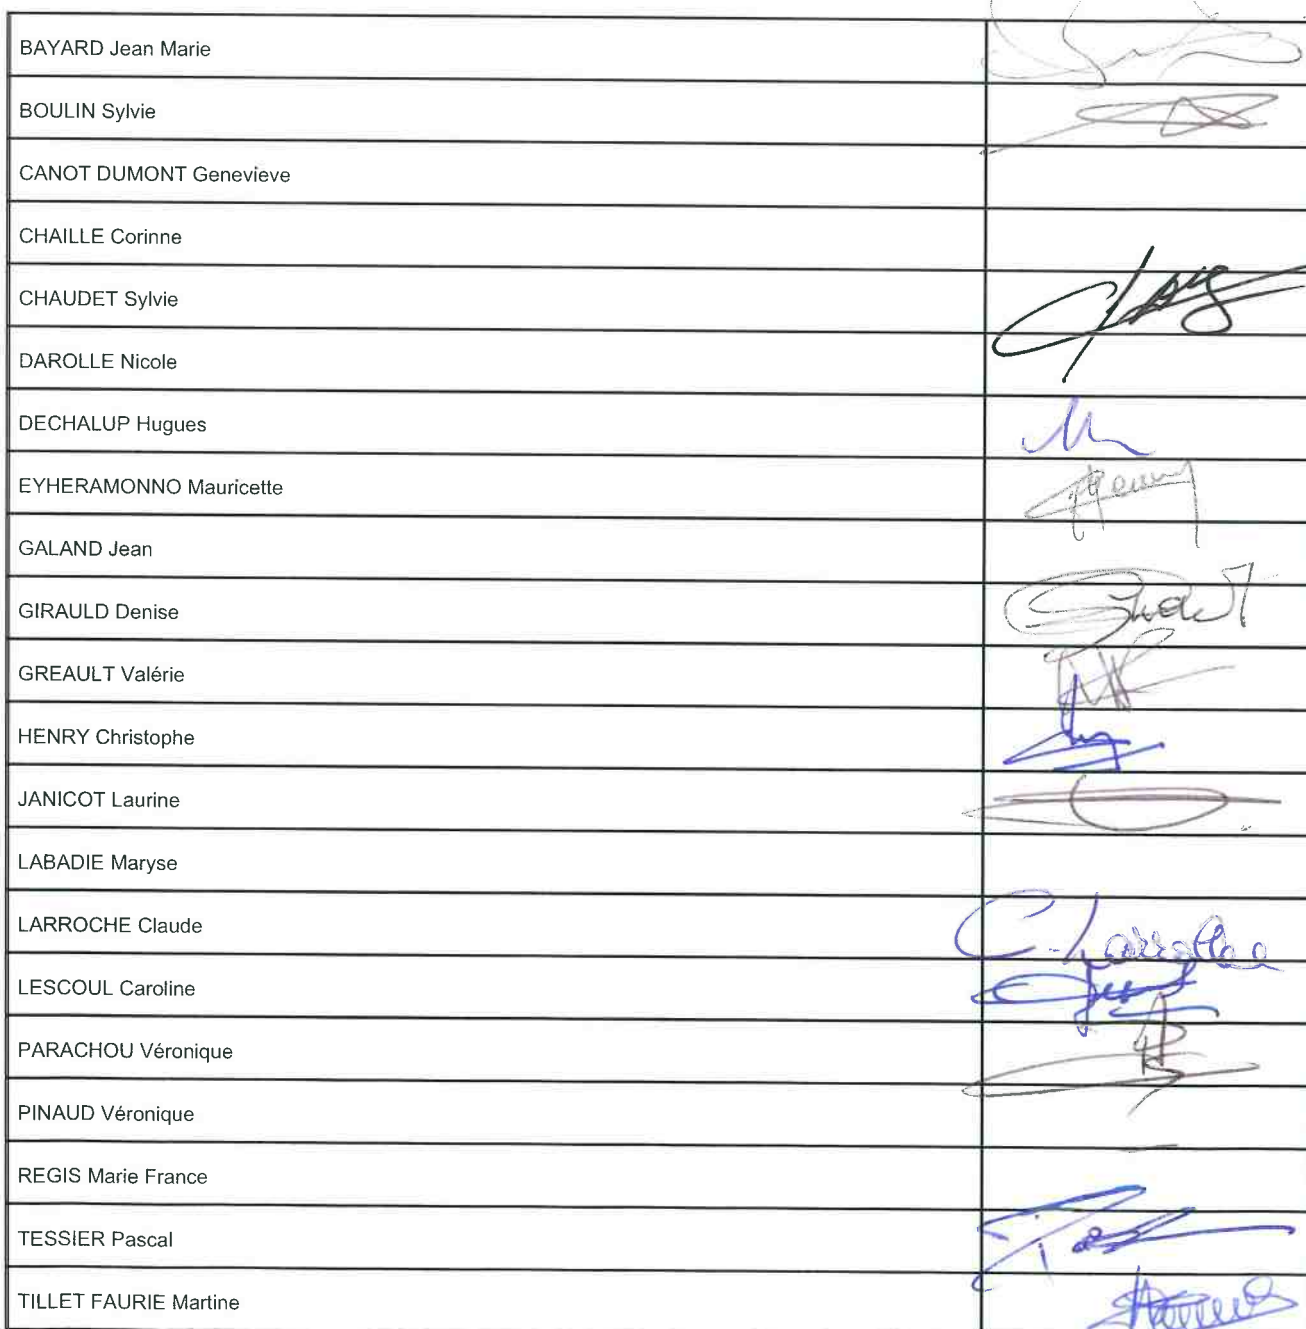 BAYARD Jean Marie
BOULIN Sylvie
CANOT DUMONT Genevieve
CHAILLE Corinne
CHAUDET Sylvie
DAROLLE Nicole
DECHALUP Hugues
EYHERAMONNO Mauricette
GALAND Jean
GIRAULD Denise
GREAULT Valérie
HENRY Christophe
JANICOT Laurine
LABADIE Maryse
LARROCHE Claude
LESCOUL Caroline
PARACHOU Véronique
PINAUD Véronique
REGIS Marie France
TESSIER Pascal
TILLET FAURIE Martine